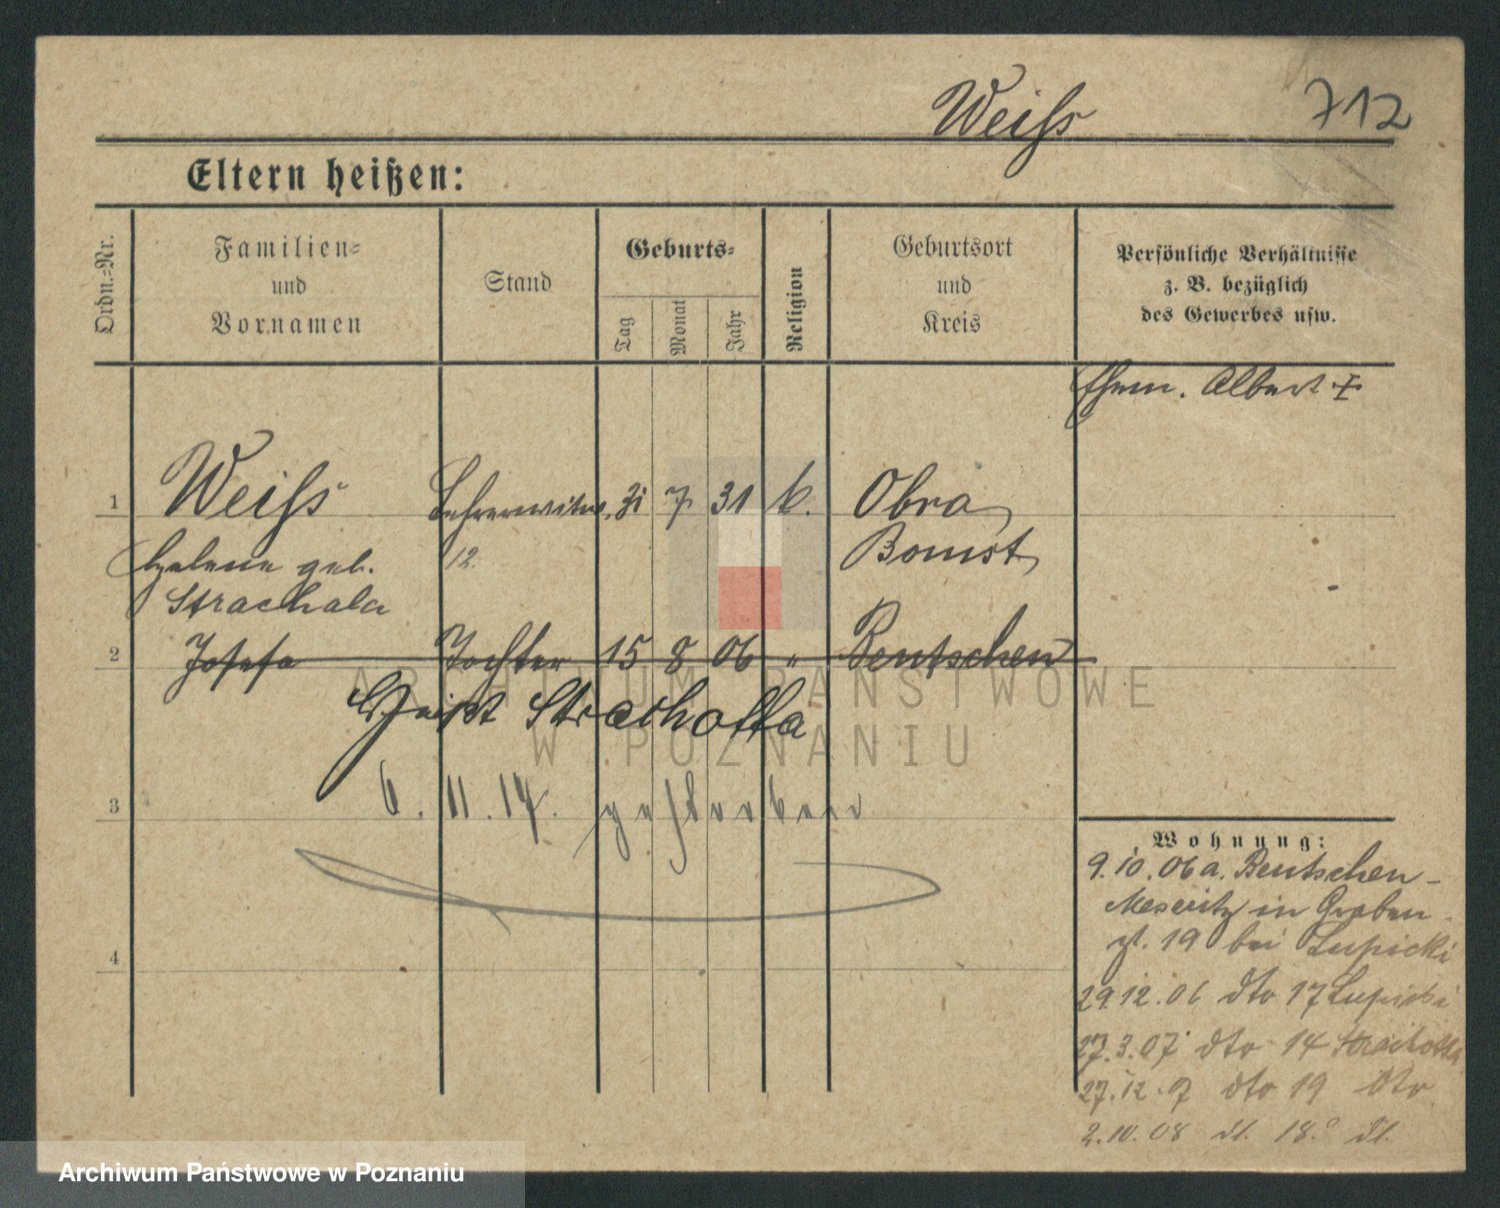 Weiſs 712
Eltern heißen:
Ordn.=Nr.
Familien=
und
Vornamen
Stand
Geburts=
Tag
Monat
Jahr
Religion
Geburtsort
und
Kreis
Persönliche Verhältnisse
z. B. bezüglich
des Gewerbes usw.
Ehem. Albert
1 Weiſs Lehrerwitw. 31 7 31 k. Obra
Helene geb. 12. Bomst
Strachala
2 Josefa Tochter 15 8 06 " Bentschen
Heißt Strachotta
3 6. 11. 14. gestorben
4
Wohnung:
9.10.06 a. Bentschen-
Meseritz in Graben-
st. 19 bei Lupicki
29.12.06 dto 17 Lupicki
27.3.07 dto 14 Strachotta
27.12.07 dto 19 dto
2.10.08 dt. 18. dt.
ARCHIWUM PAŃSTWOWE
W POZNANIU
Archiwum Państwowe w Poznaniu